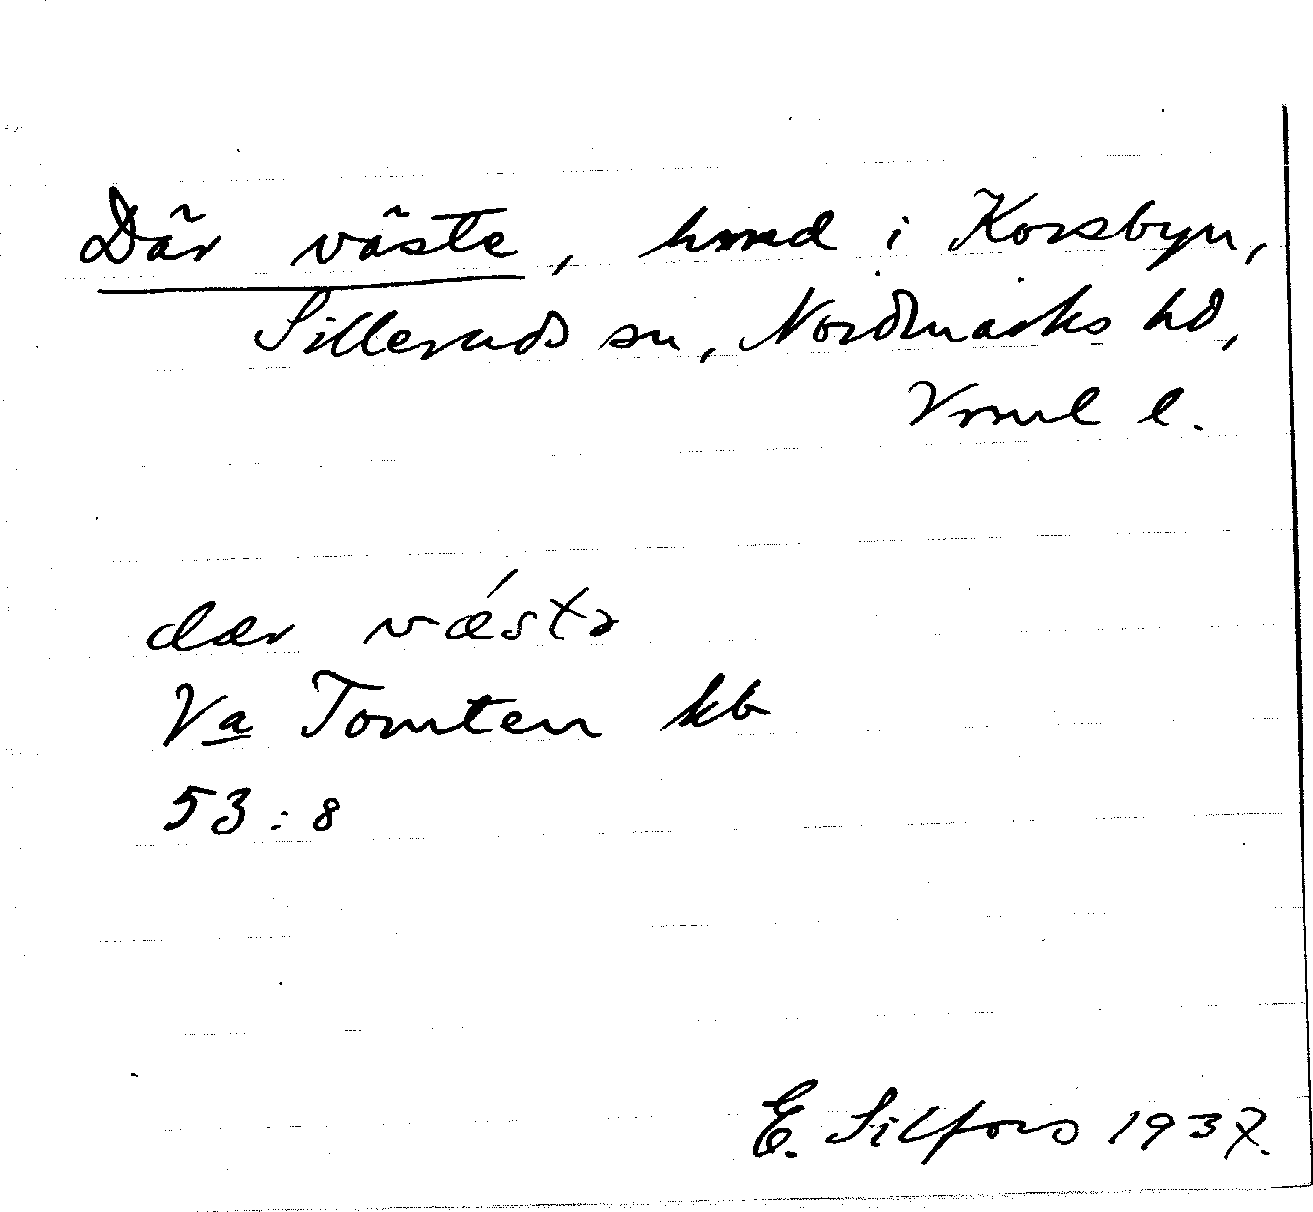 Där väste, hmd i Korsbyn,
Silleruds sn, Nordmarks hd,
Vrml l.
dær vǽstə
Va Tomten kb
53:8
E. Silfors 1937.